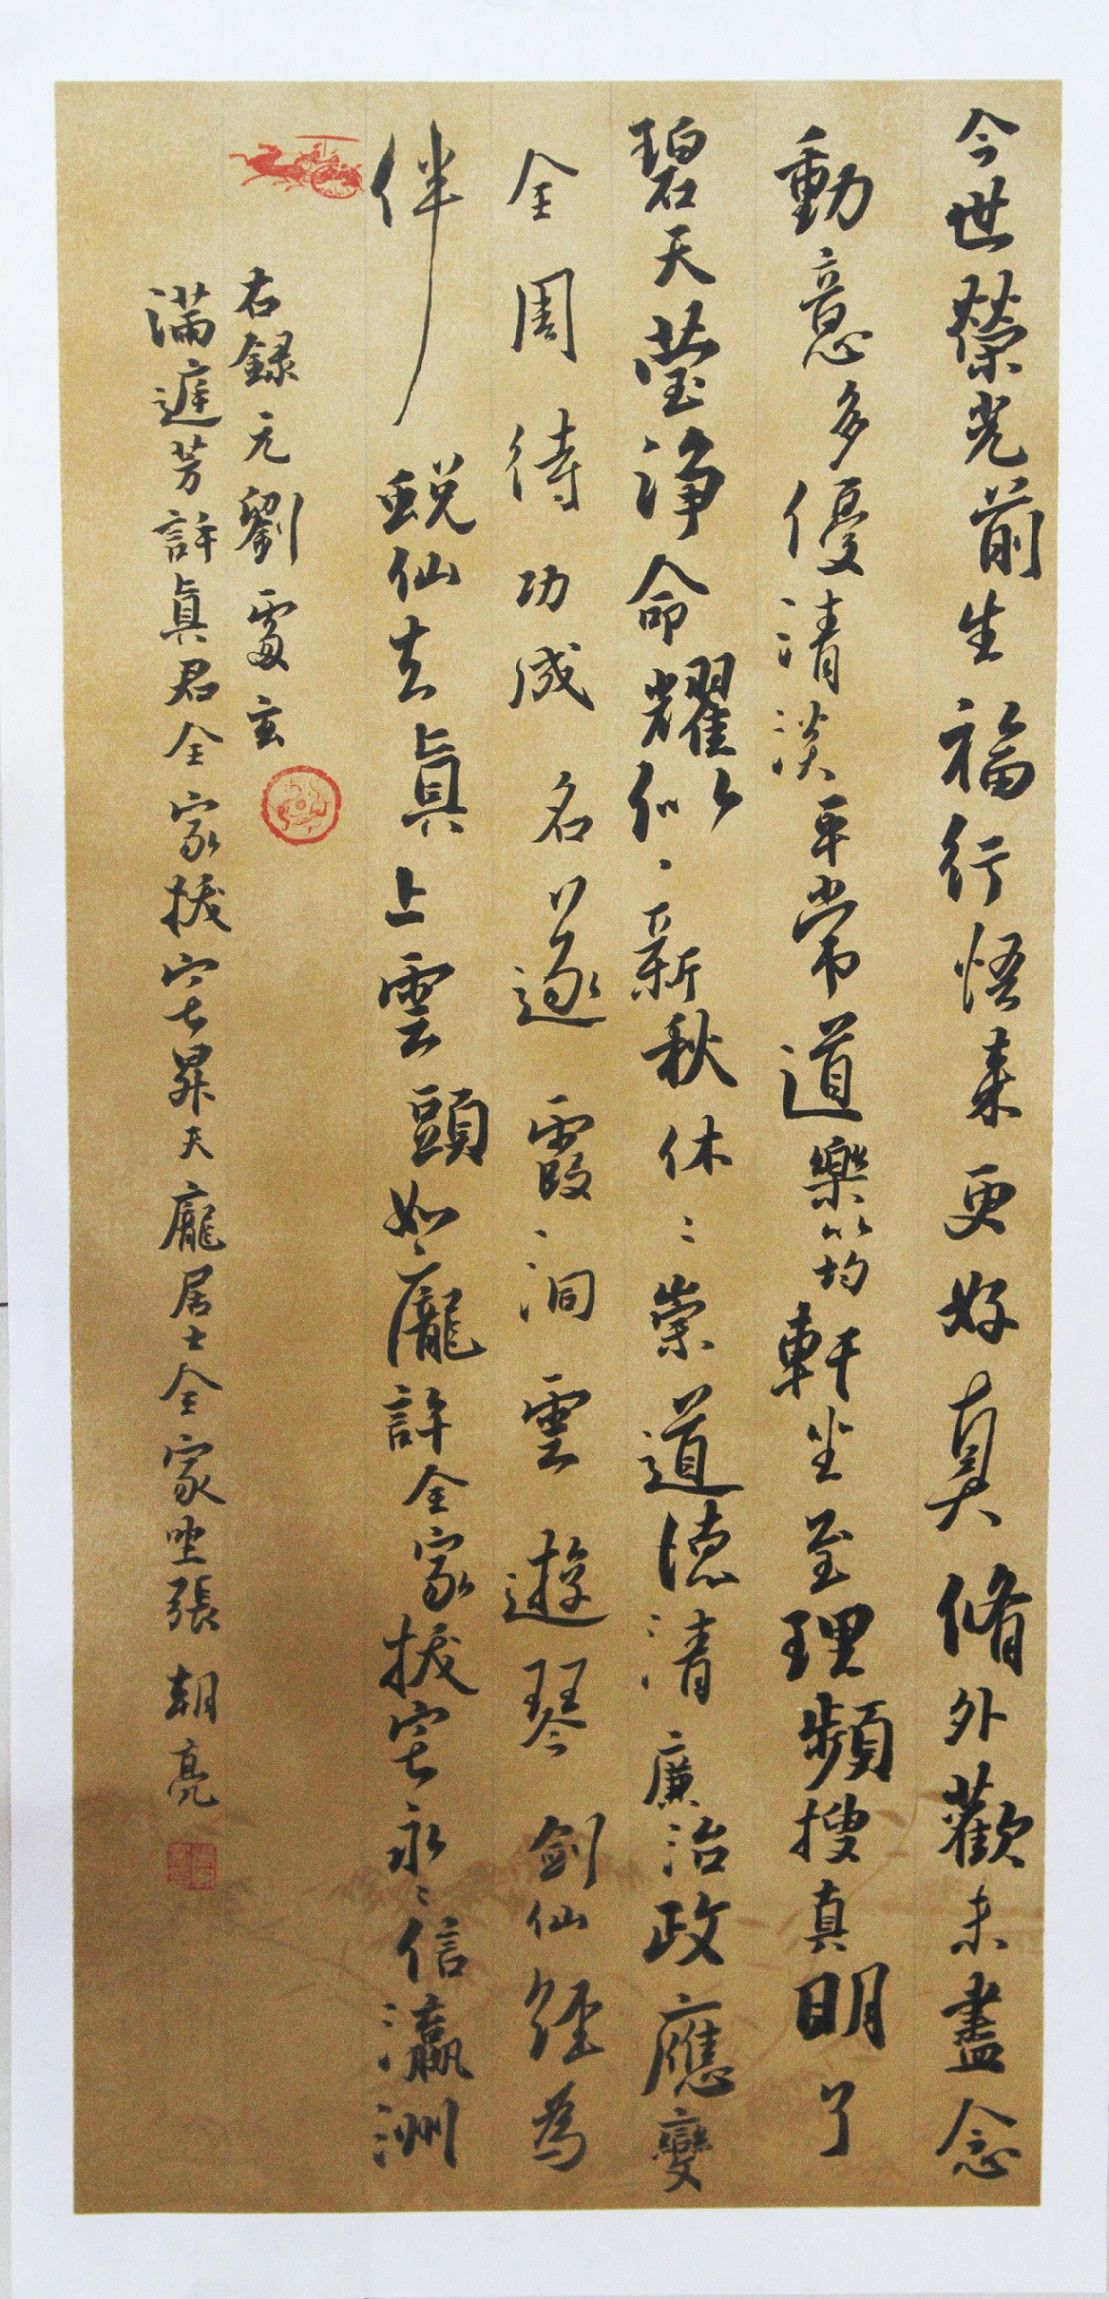 今世榮光前生福行悟来更好真脩外歡未盡念
動意多優清淡平常道樂筠軒坐至理頻搜真明了
碧天瑩淨命耀似新秋休休崇道德清廉治政應變
全周待功成名遂霞洞雲遊琴劍仙經為
伴蛻仙去真上雲頭如龐許全家拔宅永永信瀛洲
右錄元劉處玄
滿庭芳許真君全家拔宅昇天龐居士全家坐張朝亮